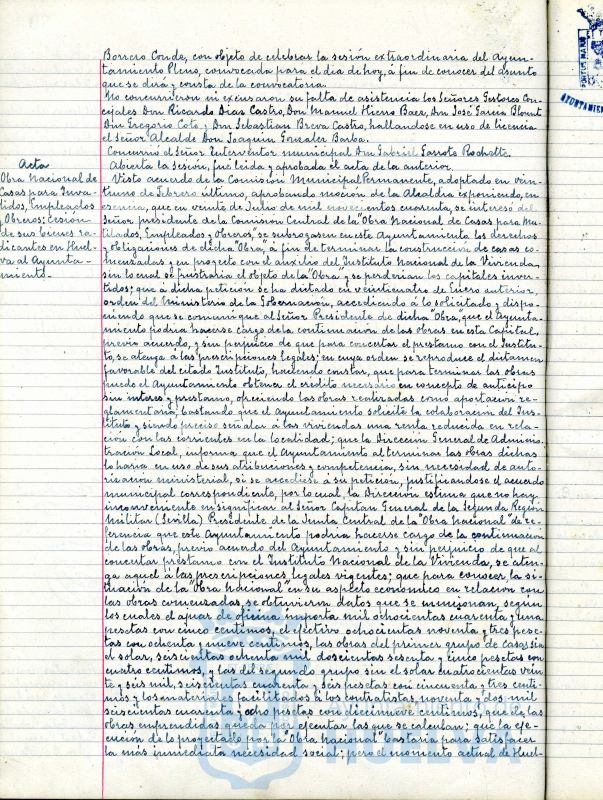 Borrero Conde, con objeto de celebrar la sesión extraordinaria del Ayun-
tamiento Pleno, convocada para el dia de hoy, á fin de conocer del asunto
que se dirá y consta de la convocatoria.
No concurrieron ni excusaron su falta de asistencia los Señores Gestores Con-
cejales Don Ricardo Dias Castro, Don Manuel Hierro Baez, Don José Garcia Blount
Don Gregorio Coto y Don Sebastian Breva Castro, hallandose en uso de licencia
el Señor Alcalde Don Joaquin Gonzalez Barba.
Concurrió el Señor Interventor municipal Don Gabriel Garrote Rochotte.
Abierta la sesión, fué leida y aprobada el acta de la anterior.
Acta
Obra Nacional de
Casas para Inva-
lidos, Empleados
y Obreros: cesion
de sus bienes ra-
dicantes en Huel-
va al Ayunta-
miento.-
Visto acuerdo de la Comisión Municipal Permanente, adoptado en vein-
tiuno de Febrero último, aprobando moción de la Alcaldia exponiendo, en
esencia, que en veinte de Junio de mil novecientos cuarenta, se interesó del
Señor presidente de la Comisión Central de la "Obra Nacional de Casas para Mu-
tilados, Empleados y Obreros", se subrogasen en este Ayuntamiento los derechos
y obligaciones de dicha "Obra", á fin de terminar la construcción de casas co-
menzadas y en proyecto con el auxilio del Instituto Nacional de la Vivienda,
sin lo cual se frustraria el objeto de la "Obra" y se perderian los capitales inver-
tidos; que á dicha petición se ha dictado en veinticuatro de Enero anterior,
orden del Ministerio de la Gobernación, accediendo á lo solicitado y dispo-
niendo que se comunique al Señor Presidente de dicha "Obra", que el Ayunta-
miento podria hacerse cargo de la continuación de las obras en esta Capital,
previo acuerdo, y sin perjuicio de que para concertar el prestamo con el Institu-
to, se atenga á las prescripciones legales; en cuya orden se reproduce el dictamen
favorable del citado Instituto, haciendo constar, que para terminar las obras
puede el Ayuntamiento obtener el credito necesario en concepto de anticipo
sin interes y prestamo, ofreciendo las obras realizadas como aportación re-
glamentaria, bastando que el Ayuntamiento solicite la colaboración del Ins-
tituto y siendo preciso señalar á las viviendas una renta reducida en rela-
ción con las corrientes en la localidad; que la Dirección General de Adminis-
tración Local, informa que el Ayuntamiento al terminar las obras dichas
lo haria en uso de sus atribuciones y competencia, sin necesidad de auto-
rizacion ministerial, si se accediese á su petición, justificandose el acuerdo
municipal correspondiente, por lo cual, la Dirección estima que no hay
inconveniente en significar al Señor Capitan General de la Segunda Región
Militar (Sevilla) Presidente de la Junta Central de la "Obra Nacional" de re-
ferencia que este Ayuntamiento podria hacerse cargo de la continuación
de las obras, previo acuerdo del Ayuntamiento y sin perjuicio de que al
concertar prestamo con el Instituto Nacional de la Vivienda, se aten-
ga aquel á las prescripciones legales vigentes; que para conocer la si-
tuación de la "Obra Nacional" en su aspecto económico en relación con
las obras comenzadas, se obtuvieron datos que se mencionan, segun
los cuales el ajuar de oficina importa mil ochocientas cuarenta y una
pesetas con cinco centimos, el efectivo ochocientas noventa y tres pese-
tas con ochenta y nueve centimos, las obras del primer grupo de casas, sin
el solar, seiscientas ochenta mil doscientas sesenta y cinco pesetas con
cuatro centimos, y las del segundo grupo sin el solar cuatrocientas vein-
te y seis mil, seiscientas cuarenta y seis pesetas con cincuenta y tres centi-
mos, y los materiales facilitados á los contratistas noventa y dos mil
seiscientas cuarenta y ocho pesetas con diecinueve centimos, que de las
obras emprendidas queda por ejecutar las que se calculan; que la eje-
cución de lo proyectado por la "Obra Nacional" bastaria para satisfacer
la más inmediata necesidad social; pero el momento actual de Huel-